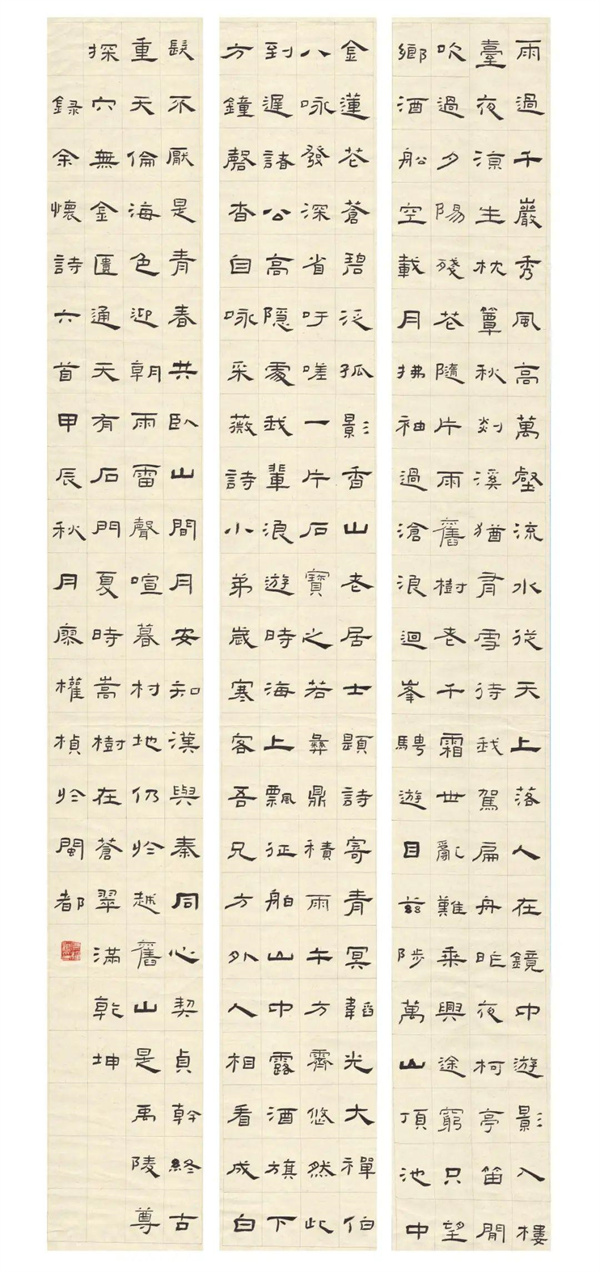 雨過千巖秀風高萬壑流水從天上落人在鏡中遊影入樓
臺夜涼生枕簟秋剡溪猶有雪待我駕扁舟昨夜柯亭笛閒
吹過夕陽殘花隨片雨舊樹老千霜世亂難乘興途窮只望
鄉酒船空載月拂袖過滄浪迴峯騁遊目茲陟萬山頂池中
金蓮花蒼碧泛孤影香山老居士題詩寄青冥韜光大禪伯
八咏發深省吁嗟一片石寶之若彝鼎積雨午方霽悠然此
到遲諸公高隱處我輩浪遊時海上飄征舶山中露酒旗下
方鐘磬杳自咏采薇詩小弟歲寒客吾兄方外人相看成白
髮不厭是青春共臥山間月安知漢與秦同心契貞幹終古
重天倫海色迎朝雨雷聲喧暮村地仍於越舊山是禹陵尊
探穴無金匱通天有石門夏時嵩樹在蒼翠滿乾坤
錄余懷詩六首甲辰秋月廖權楨於閩都